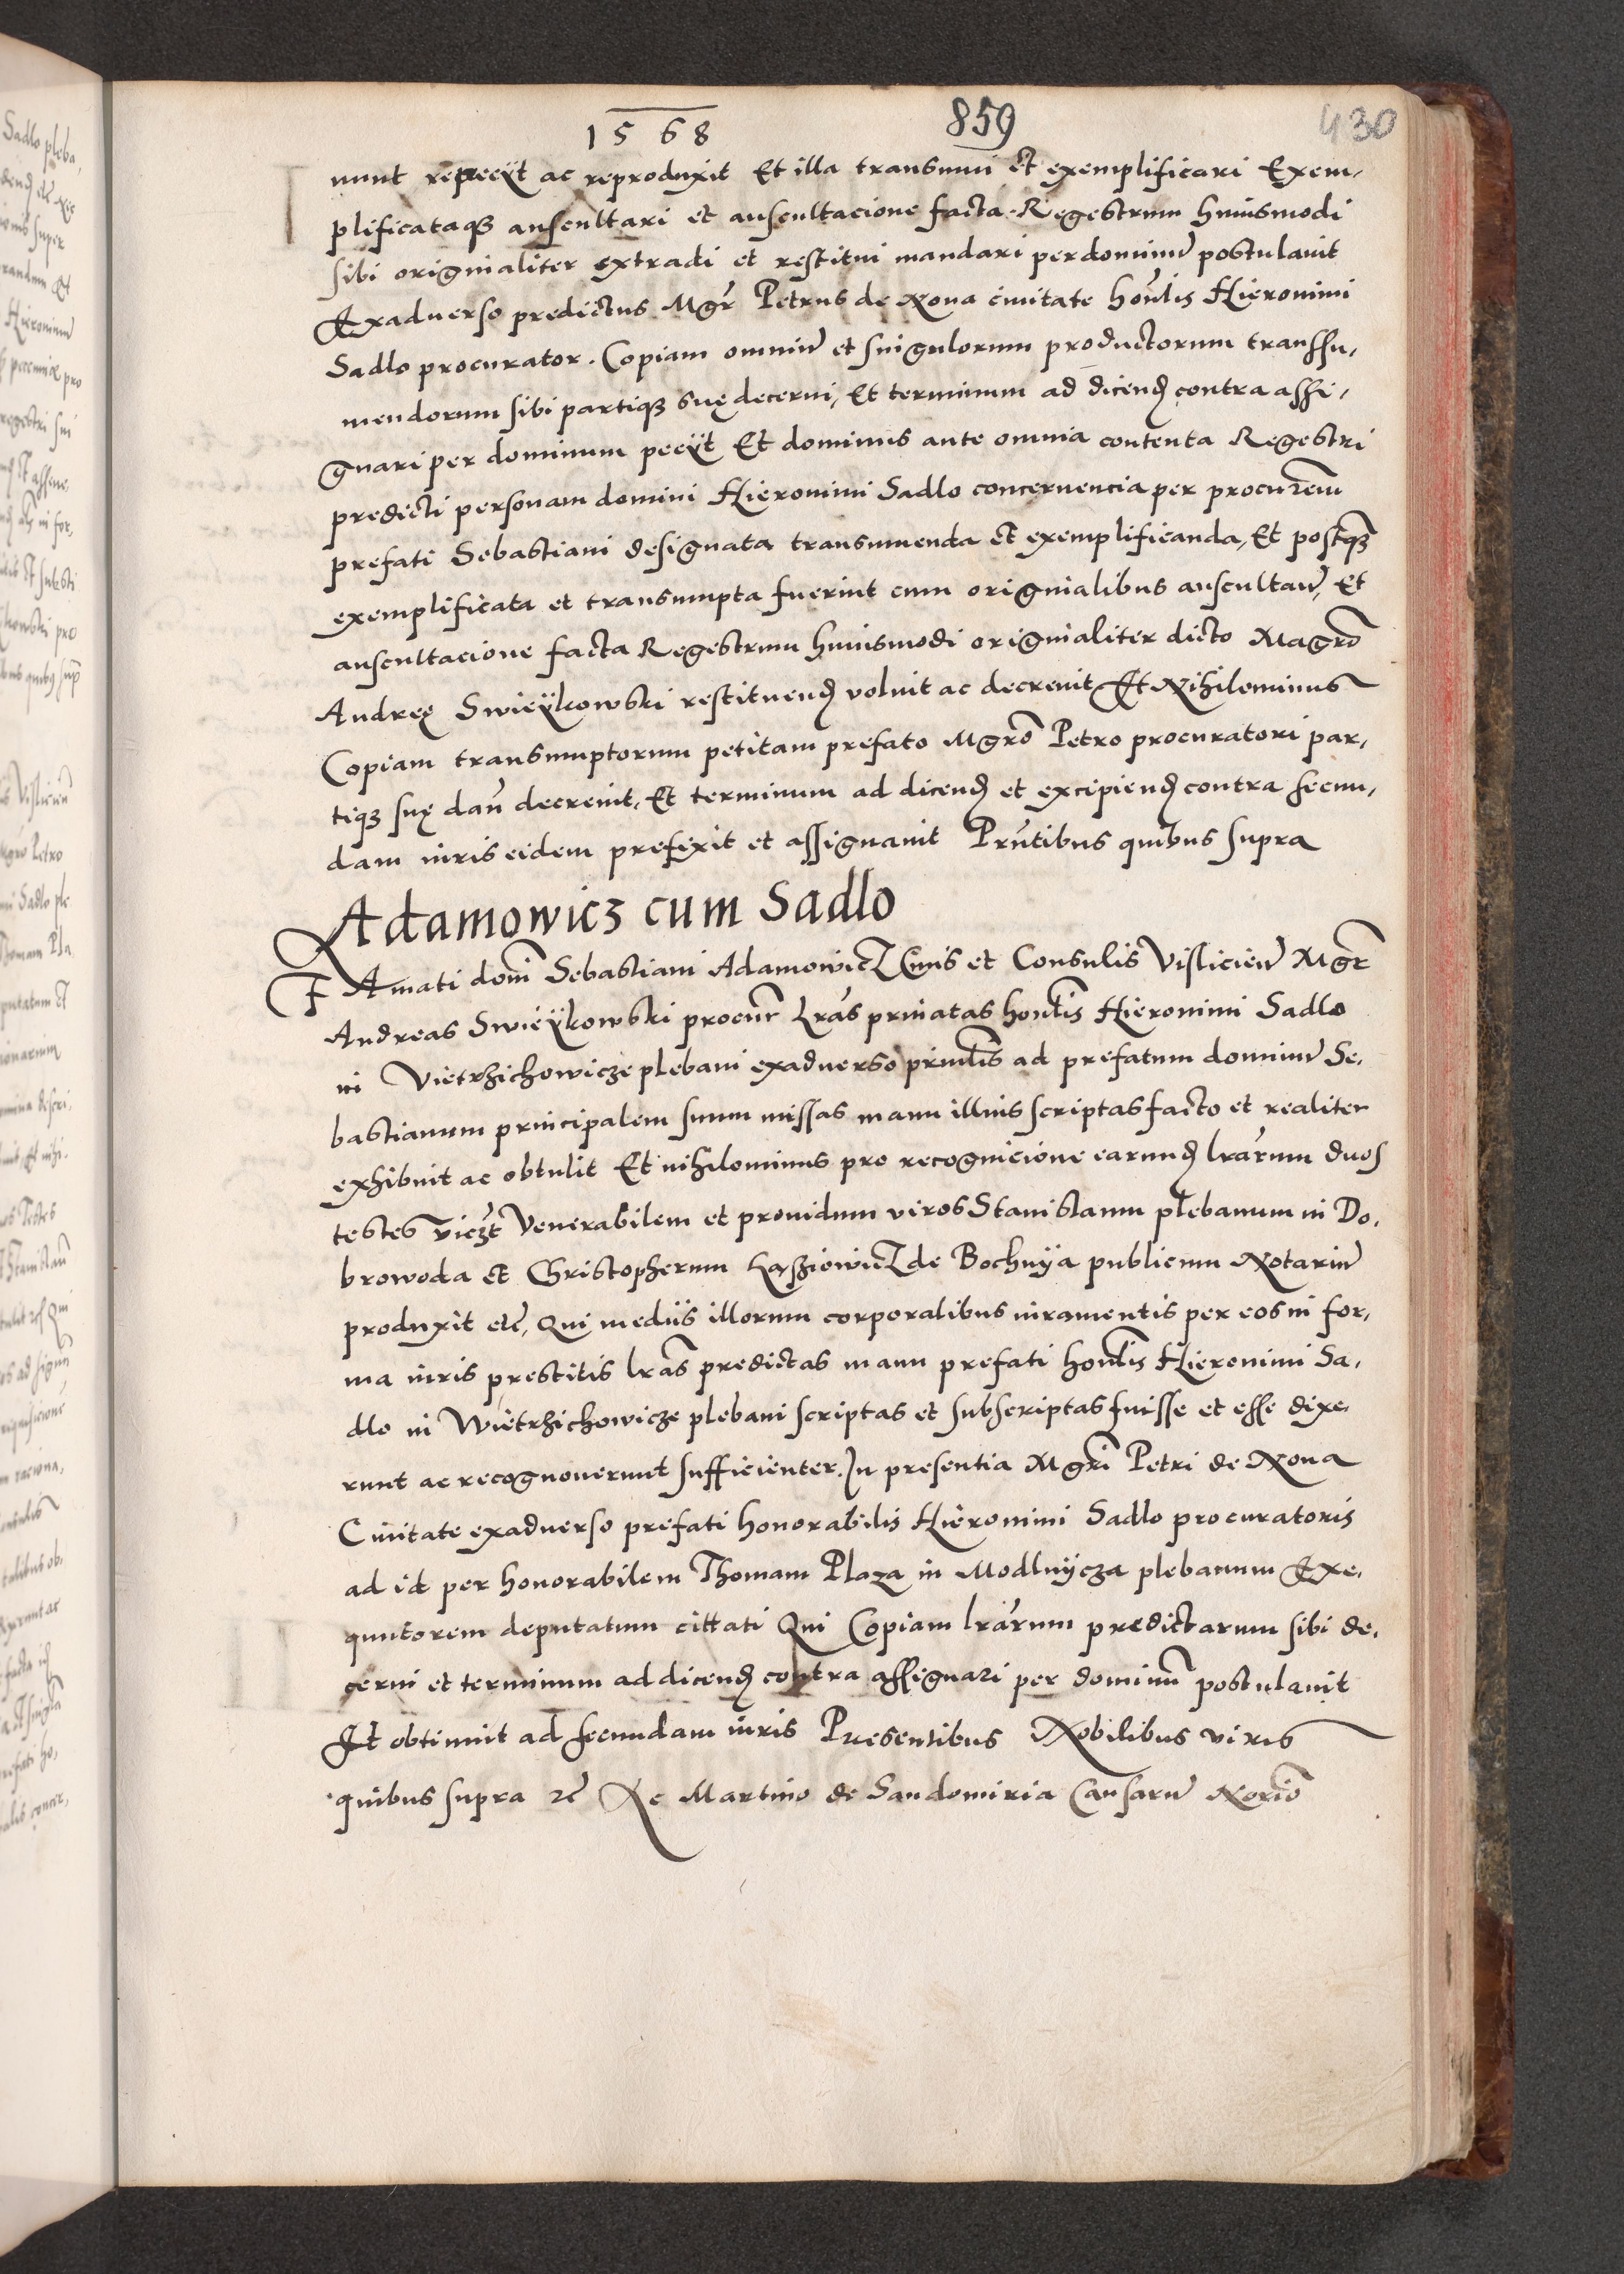 1568 859 430
nunt repeciit ac reproduxit Et illa transumi et exemplificari Exem-
plificataqȝ auscultari et auscultacione facta Regestrum huiusmodi
sibi originaliter extradi et restitui mandari per dominū postulauit
Exaduerso predictus Mgr̄ Petrus de Noua ciuitate hon̄lis Hieronimi
Sadlo procurator. Copiam omniū et singulorum productorum transsu-
mendorum sibi partiqȝ suę decerni, Et terminum ad dicend contra assi-
gnari per dominum peciit Et dominus ante omnia contenta Regestri
predicti personam domini Hieronimi Sadlo concernencia per procurem̄
prefati Sebastiani designata transumenda et exemplificanda, Et postqȝ
exemplificata et transumpta fuerint cum originalibus auscultan̄, Et
auscultacione facta Regestrum huiusmodi originaliter dicto Magr̄o
Andreę Swieÿkowski restituend voluit ac decreuit Et Nihilominus
Copiam transumptorum petitam prefato Mgr̄o Petro procuratori par-
tiqȝ suę dan̄ decreuit, Et terminum ad dicend et excipiend contra secun-
dam iuris eidem prefixit et assignauit Prn̄tibus quibus supra
Adamowicz cum Sadlo
Famati domī Sebastiani Adamowicz Ciuis et Consulis Vislicien̄ Mgr̄
Andreas Swieÿkowski procur̄ Lr̄as priuatas honlis Hieronimi Sadlo
in Vietrzichowicze plebani exaduerso prin̄lis ad prefatum dominū Se-
bastianum principalem suum missas manu illius scriptas facto et realiter
exhibuit ac obtulit Et nihilominus pro recognicione earund lrar̄um duos
testes viczt Venerabilem et prouidum viros Stanislaum plebanum in Do-
browoda et Christopherum de Bochnÿa publicum Notariū
produxit etc̄, Qui mediis illorum corporalibus iuramentis per eos in for-
ma iuris prestitis lr̄as predictas manu prefati honlis Hieronimi Sa-
dlo in Wietrzichowicze plebani scriptas et subscriptas fuisse et esse dixe-
runt ac recognouerunt sufficienter. In presentia Mgr̄i Petri de Noua
Ciuitate exaduerso prefati honorabilis Hieronimi Sadlo procuratoris
ad id per honorabilem Thomam Plaza in Modlnÿcza plebanum Exe-
quutorem deputatum cittati Qui Copiam lrar̄um predictarum sibi de-
cerni et terminum ad dicend contra assignari per dominū postulauit
Et obtinuit ad secundam iuris Presentibus Nobilibus viris
quibus supra etc̄ Ac Martino de Sandomiria Causarū Norio